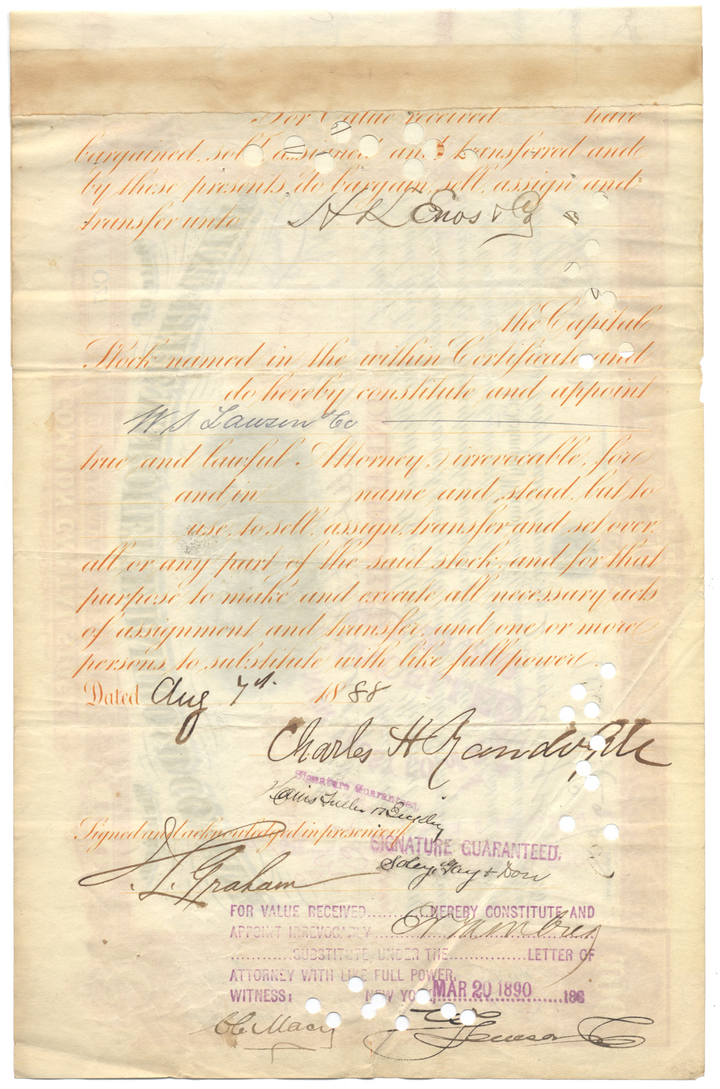 For Value received have
bargained, sold, assigned and transferred and
by these presents do bargain, sell, assign and
transfer unto H L Enos & Co
the Capital
Stock named in the within Certificate and
do hereby constitute and appoint
W S Lawson & Co
true and lawful Attorney, irrevocable, for
and in name and stead, but to
use, to sell, assign, transfer and set over,
all or any part of the said stock, and for that
purpose to make and execute all necessary acts
of assignment and transfer, and one or more
persons to substitute with like full power.
Dated Aug 7th 1888
Charles H
Signature Guaranteed.
Signed and acknowledged in presence of
SIGNATURE GUARANTEED.
J. L. Graham
FOR VALUE RECEIVED HEREBY CONSTITUTE AND
APPOINT IRREVOCABLY
SUBSTITUTE UNDER THE LETTER OF
ATTORNEY WITH LIKE FULL POWER.
WITNESS: NEW YORK, MAR 20 1890 188
Macy Lawson & Co